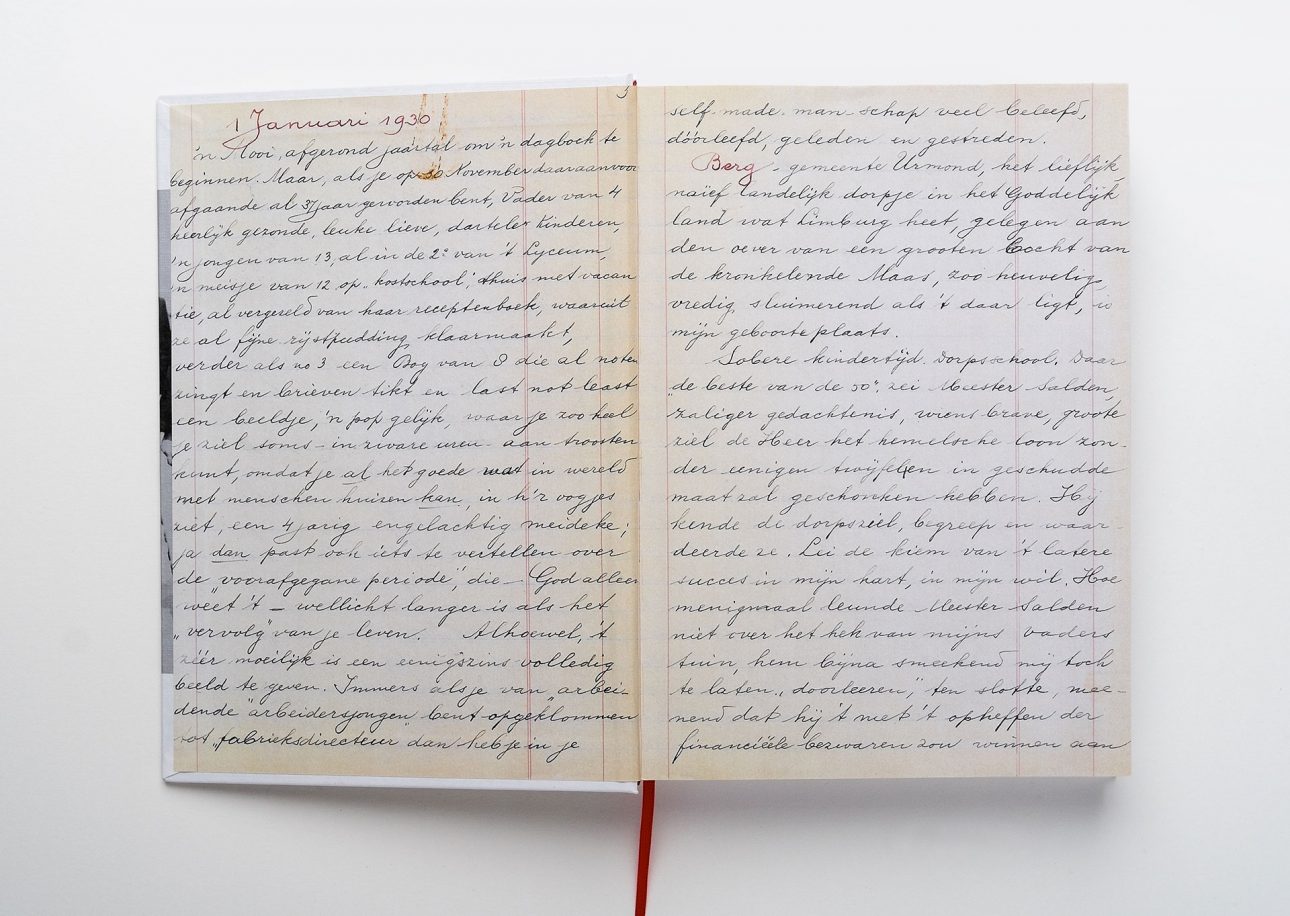 1 Januari 1930
'n Mooi, afgerond jaartal om 'n dagboek te
beginnen. Maar, als je op 30 November daaraanvoor
afgaande al 37 jaar geworden bent, Vader van 4
heerlijk gezonde, leuke lieve, dartele Kinderen,
'n jongen van 13, al in de 2e van 't Lyceum,
'n meisje van 12 op "kostschool", thuis met vacan
tie, al vergezeld van haar receptenboek, waaruit
ze al fijne rijstpudding klaarmaakt,
verder als no 3 een Boy van 8 die al noten
zingt en brieven tikt en last not least
een beeldje, 'n pop gelijk, waar je zoo heel
je ziel soms - in zware uren - aan troosten
kunt, omdat je al het goede wat in wereld
met menschen huizen kan, in h'r oogjes
ziet, een 4 jarig engelachtig meideke;
ja dan past ook iets te vertellen over
de "voorafgegane periode", die - God alleen
weet 't - wellicht langer is als het
"vervolg" van je leven. Alhoewel, 't
zéér moeilijk is een eenigszins volledig
beeld te geven. Immers als je van "arbei-
dende" arbeidersjongen bent opgeklommen
tot "fabrieksdirecteur" dan heb je in je
5
self-made-man-schap veel beleefd,
dóórleefd, geleden en gestreden.
Berg - gemeente Urmond, het lieflijk,
naïef landelijk dorpje in het Goddelijk
land wat Limburg heet, gelegen aan
den oever van een grooten bocht van
de kronkelende Maas, zoo heuvelig,
vredig, sluimerend als 't daar ligt, is
mijn geboorteplaats.
Sobere kindertijd. Dorpsschool. Daar
"de beste van de 50", zei Meester Salden,
zaliger gedachtenis, wiens brave, groote
ziel de Heer het hemelsche loon zon-
der eenigen twijfel in geschudde
maat zal geschonken hebben. Hij
kende de dorpsziel, begreep en waar-
deerde ze. Lei de kiem van 't latere
succes in mijn hart, in mijn wil. Hoe
menigmaal leunde Meester Salden
niet over het hek van mijns vaders
tuin, hem bijna smeekend mij toch
te laten "doorleeren", ten slotte, mee-
nend dat hij 't met 't opheffen der
financiëele bezwaren zou winnen aan